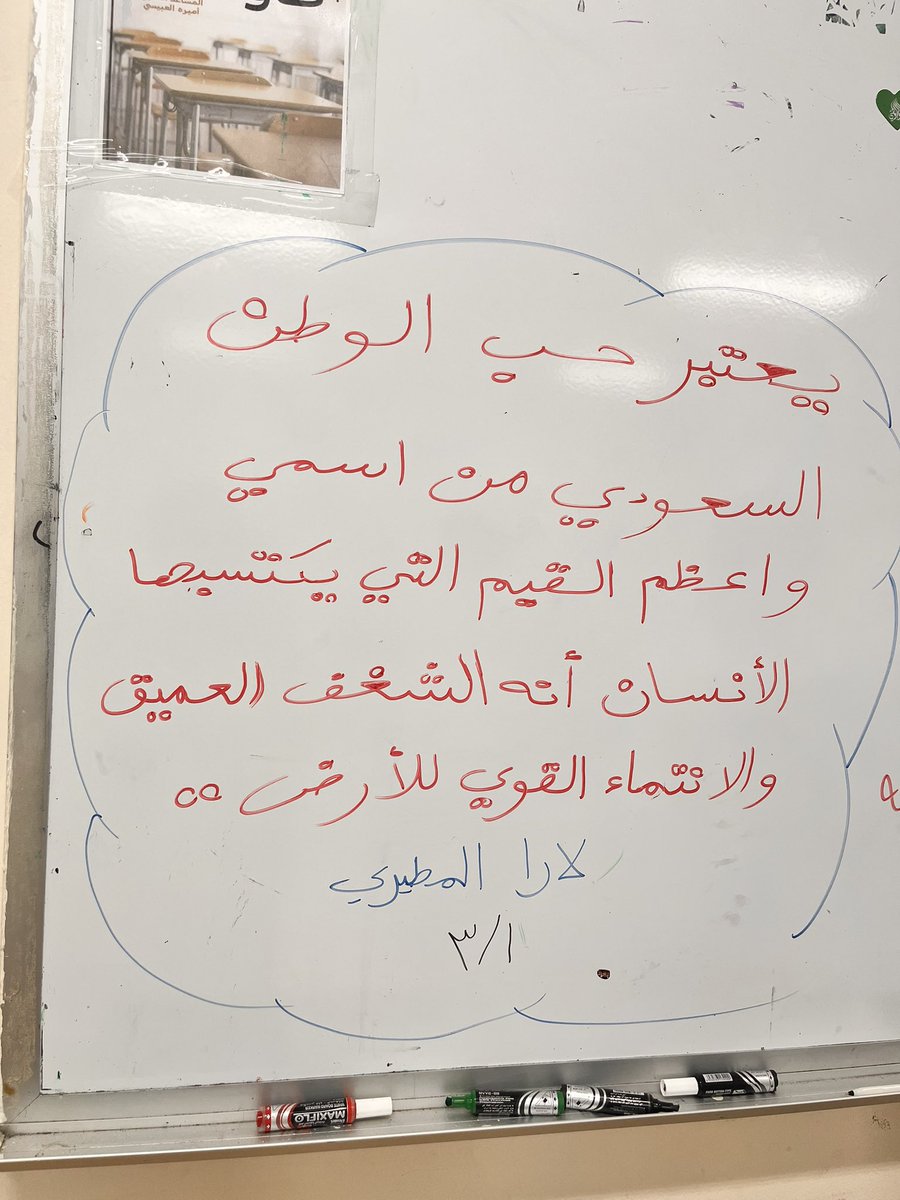 أميره العبيسي
يعتبر حب الوطن
السعودي من اسمي
واعظم القيم التي يكتسبها
الأنسان أنه الشغف العميق
والانتماء القوي للأرض ..
لارا المطيري
٣/١
MAXIFLO